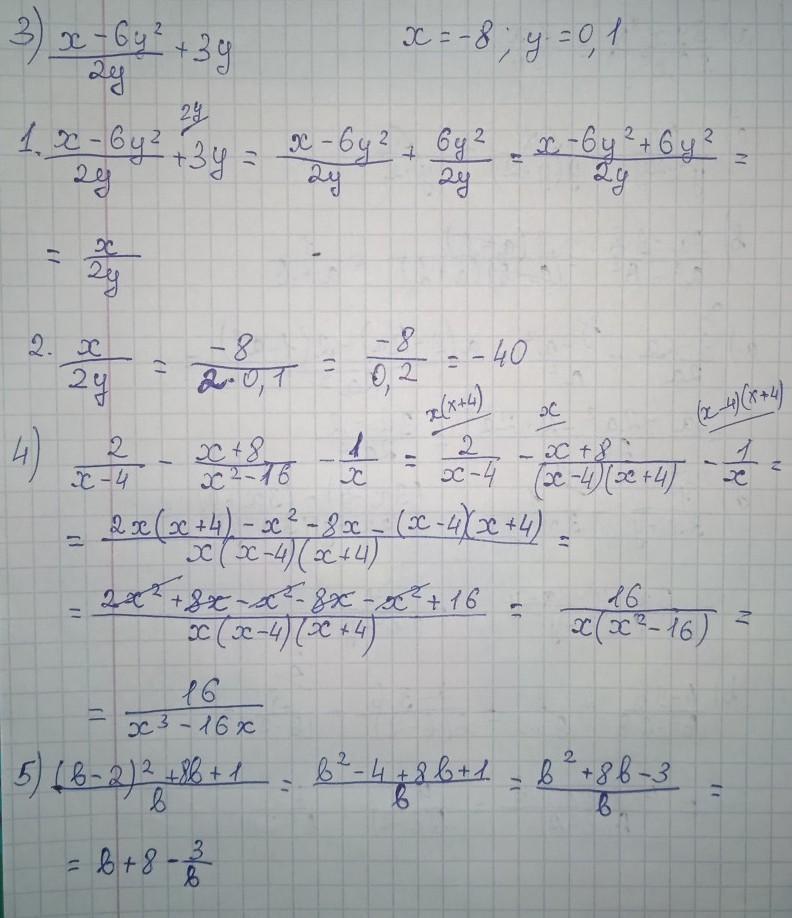 3) (x - 6y²)/(2y) + 3y    x = -8; y = 0,1
1. (x - 6y²)/(2y) + 3y^{2y/} = (x - 6y²)/(2y) + (6y²)/(2y) = (x - 6y² + 6y²)/(2y) =
= x/(2y)
2. x/(2y) = (-8)/(2·0,1) = (-8)/(0,2) = -40
x(x+4)    x    (x-4)(x+4)
4) 2/(x-4) - (x+8)/(x²-16) - 1/x = 2/(x-4) - (x+8)/((x-4)(x+4)) - 1/x =
= (2x(x+4) - x² - 8x - (x-4)(x+4))/(x(x-4)(x+4)) =
= (2x² + 8x - x² - 8x - x² + 16)/(x(x-4)(x+4)) = 16/(x(x²-16)) =
= 16/(x³ - 16x)
5) ((b-2)² + 8b + 1)/b = (b² - 4 + 8b + 1)/b = (b² + 8b - 3)/b =
= b + 8 - 3/b